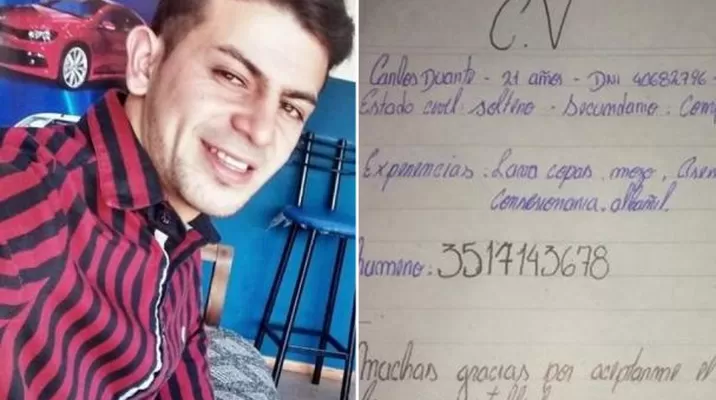 C.V
Carlos Duarte - 21 años - DNI 40682796 -
Estado civil: soltero - Secundario: Com
Experiencias: Lava copas, mozo,
Consesionaria. albañil.
humeno: 3517143678
muchas gracias por aceptarme el